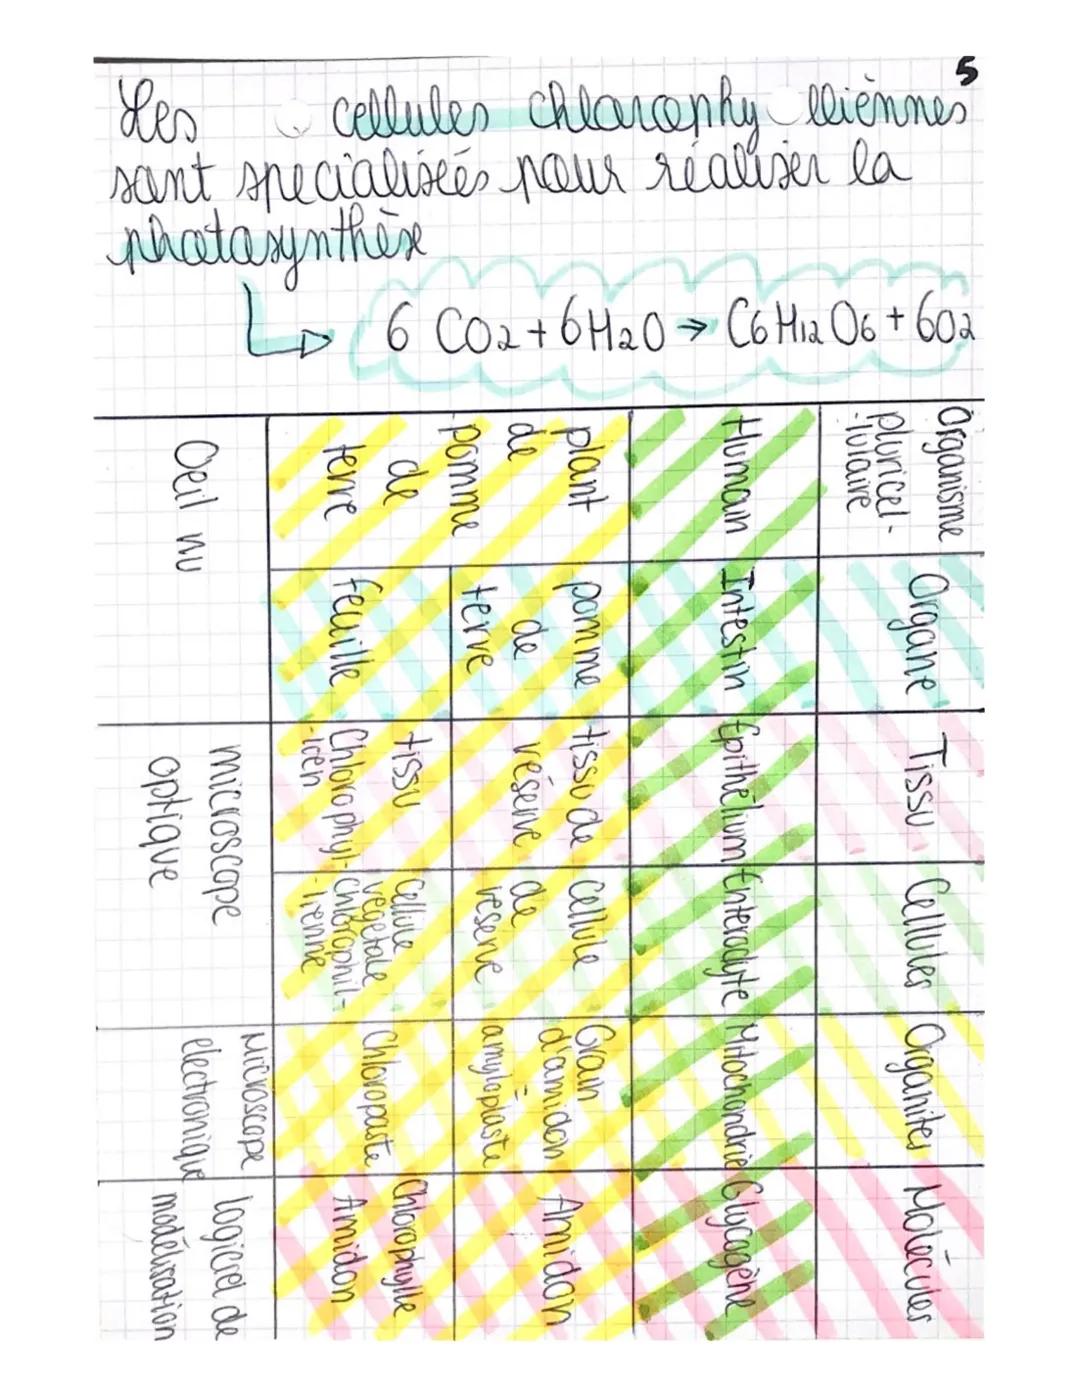 5
Les cellules chlorophylliènnes
sont specialiseés pour réaliser la
photosynthèse
6 CO2 + 6H2O → C6H12O6 + 6O2
Organisme pluricel- -lulaire
Organe
Tissu
Cellules
Organites
Molécules
Humain
Intestin
Epithélium
Enterocyte
Mitochondrie
Glycogène
plant de pomme de terre
pomme de terre
tissu de réserve
Cellule de reserve
Grain d'amidon = amyloplaste
Amidon
feuille
tissu Chlorophyl- -icèn
Cellule végétale chlorophil- -ienne
Chloropaste
Chlorophylle Amidon
Oeil nu
microscope optique
Microscope électronique
logiciel de modélisation